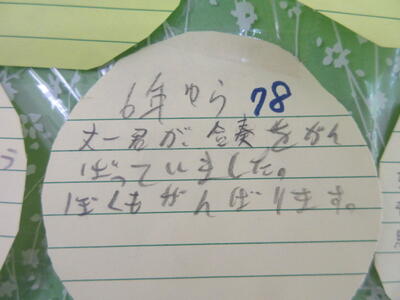 6年 ゆら 78
丈一君が、合奏をがん
ばっていました。
ぼくもがんばります。